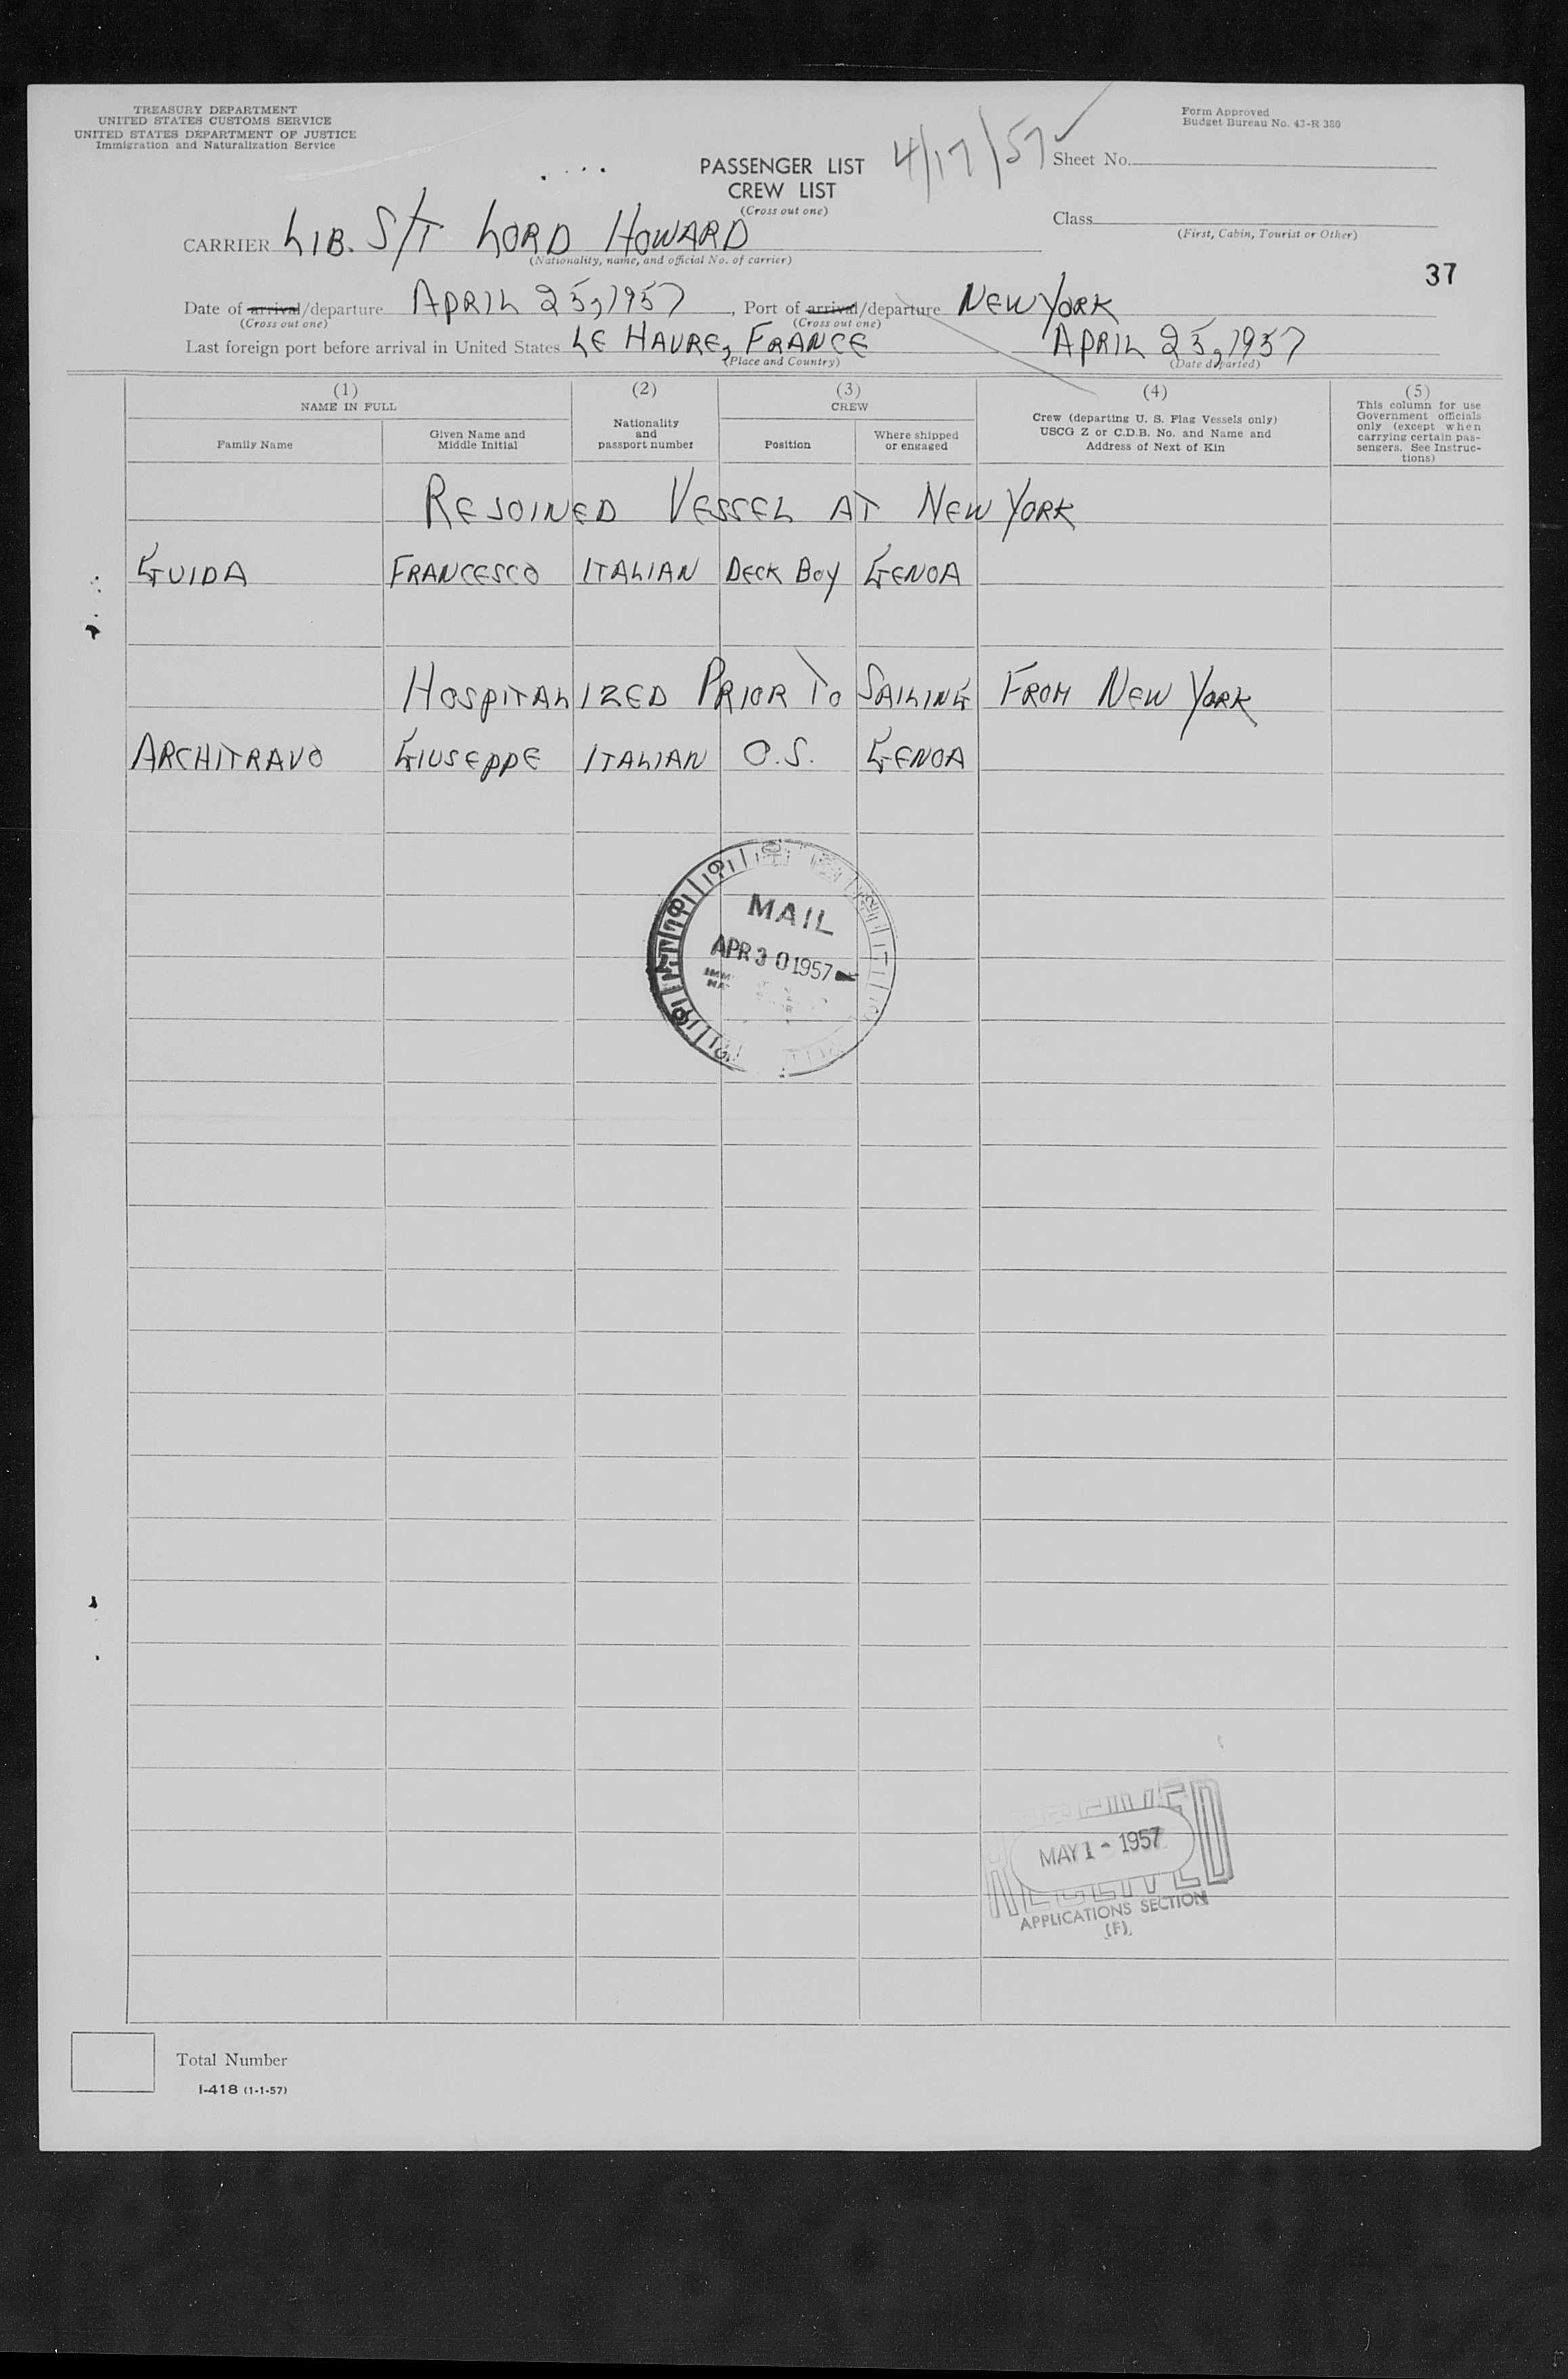 TREASURY DEPARTMENT
UNITED STATES CUSTOMS SERVICE
UNITED STATES DEPARTMENT OF JUSTICE
Immigration and Naturalization Service
Form Approved
Budget Bureau No. 43-R 380
PASSENGER LIST
CREW LIST
(Cross out one)
4/17/57 ✓
Sheet No.
Class
(First, Cabin, Tourist or Other)
CARRIER LIB. S/T LORD HOWARD
(Nationality, name, and official No. of carrier)
37
Date of arrival/departure APRIL 25, 1957, Port of arrival/departure NEW YORK
(Cross out one) (Cross out one)
Last foreign port before arrival in United States LE HAVRE, FRANCE APRIL 25, 1957
(Place and Country) (Date departed)
(1) (2) (3) (4) (5)
NAME IN FULL
Family Name
Given Name and
Middle Initial
Nationality
and
passport number
CREW
Position
Where shipped
or engaged
Crew (departing U. S. Flag Vessels only)
USCG Z or C.D.B. No. and Name and
Address of Next of Kin
This column for use
Government officials
only (except when
carrying certain pas-
sengers. See Instruc-
tions)
REJOINED VESSEL AT NEW YORK
GUIDA FRANCESCO ITALIAN DECK BOY GENOA
HOSPITALIZED PRIOR TO SAILING FROM NEW YORK
ARCHITRAVO GIUSEPPE ITALIAN O.S. GENOA
MAIL
APR 30 1957
RECEIVED
MAY 1 - 1957
APPLICATIONS SECTION
(F)
Total Number
I-418 (1-1-57)